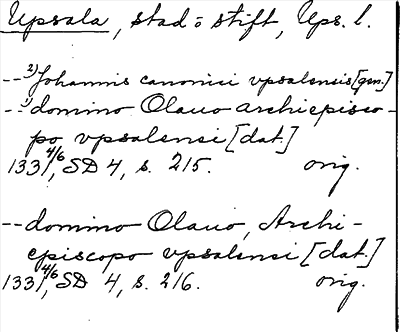 Upsala, stad o. stift, Ups. l.
-- 2) Johannis canonici vpsalensis [gen.]
-- 1) domino Olauo archiepisco-
po vpsalensi [dat.]
1331 4/6, SD 4, s. 215. orig.
-- domino Olauo, Archi-
episcopo vpsalensi [dat.]
1331 4/6, SD 4, s. 216. orig.